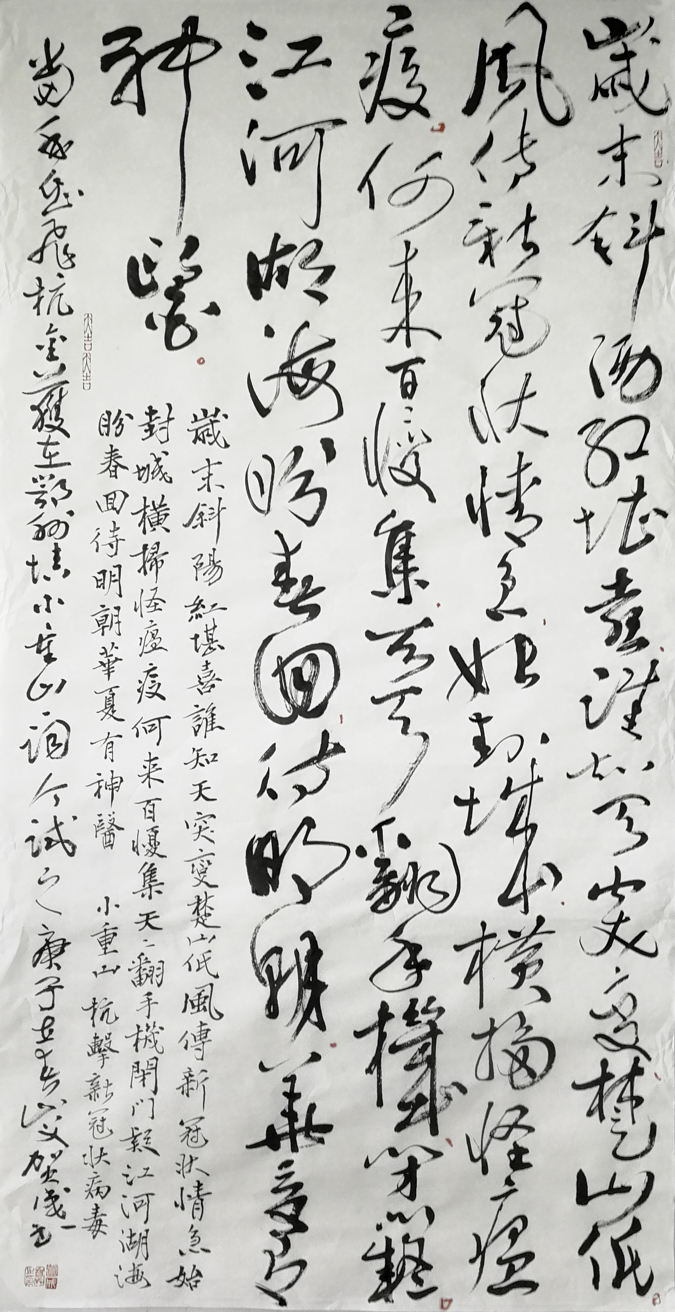 歲末斜陽紅堪喜誰知天突變楚山低
風傳新冠狀情急始封城橫掃怪瘟
疫何來百懮集天天翻手機閉門
江河湖海盼春回待明朝華夏有
神醫
歲末斜陽紅堪喜誰知天突變楚山低風傳新冠狀情急始
封城橫掃怪瘟疫何來百懮集天〻翻手機閉門江河湖海
盼春回待明朝華夏有神醫 小重山 抗擊新冠狀病毒
當年岳飛抗金在鄂州填小重山詞今試之庚子